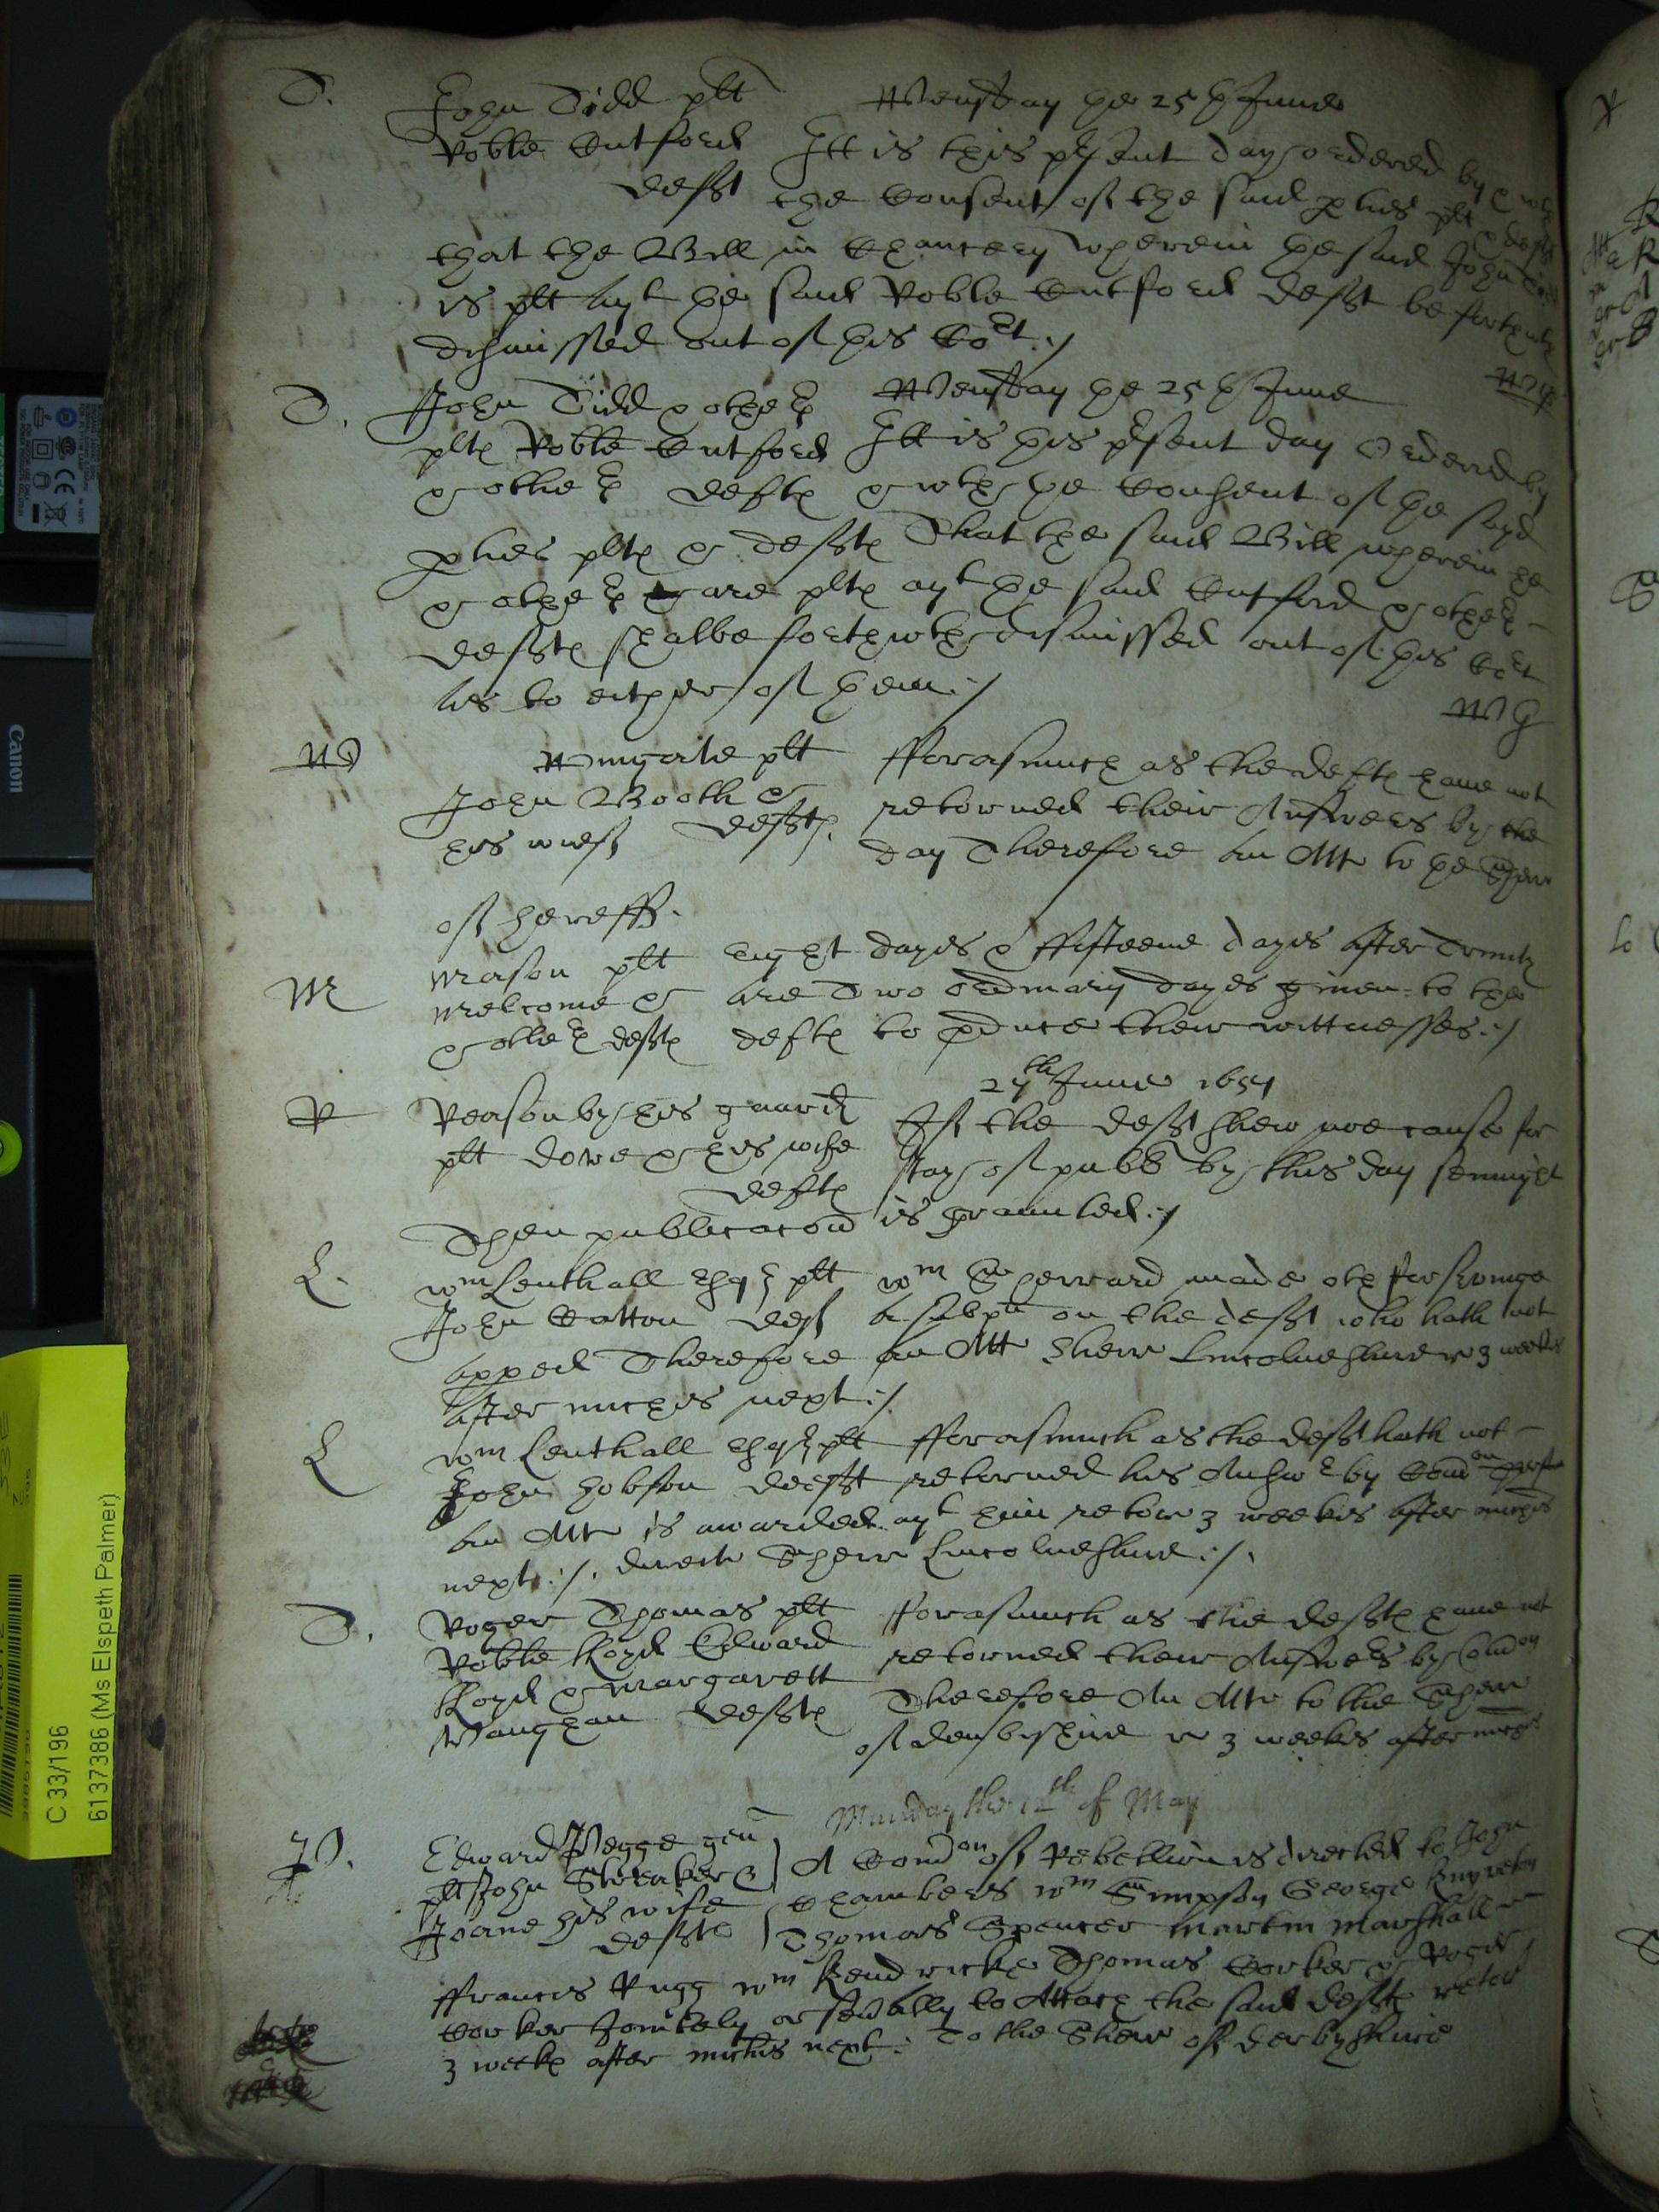 T. John Tidd plt Wensday the 25th June
Robte Cutford Itt is this psent day ordered by & wth
defft the Consent of the said pties plt & defft
that the Bill in Chancery wherein the said John Tidd
is plt agt the said Robte Cutford defft be forthwth
dismissed out of this Cort :/
T. John Tidd & others Wensday the 25th June
pltes Robte Cutford Itt is this psent day Ordered by
& others deftes & wth the Consent of the sayd
pties pltes & defftes That the said Bill wherein he
& others are pltes agt the said Cutford & others
defftes shalbe forthwth dismissed out of this Cort
as to either of them :/
WG
W Wingate plt fforasmuch as the deftes haue not
John Booth & retorned their Answers by the
his wief defftes. day Therefore An Att to the Sherr
of hereff.
M Mason plt Eight dayes & ffifteene dayes after Trinity
Welcome & are Two ordinary dayes giuen to the
& others defftes deftes to pduce their wittnesses :/
27th June 1651
R Reason by his guard If the defft shew noe cause for
plt Dowe & his wife stay of publ by this day sennight
deftes
Then publicacon is graunted :/
L. Wm Lenthall Esqr plt Wm Sherrard made oth for seruinge
John Catton deft a subpa on the defft who hath not
apped Therefore an Att Sherr Lincolneshire r 3 weekes
after miches next :/
L Wm Lenthall Esqr plt fforasmuch as the defft hath not
John Hobson defft retorned his Answer by Comon
an Att is awarded agt him retor 3 weekes after miches
next :/. directe Sherr Lincolneshire :/.
T. Roger Thomas plt fforasmuch as the defftes haue not
Robte lloyd Edward retorned their Answers by Comon
lloyd & Margarett Therefore An Att to the Sherr
Vaughan defftes of denbyshire r 3 weekes after miches
Munday the 12th of May
P. Edward Pegge gen A Comon of Rebellion is directed to John
plt John Storaker & Chambers Wm Simpson George Knyveton
Joane his wife Thomas Spencer Martin Marshall
defftes
ffrancis Rugg Wm Kendricke Thomas Corker & Roger
Corker Joyntely or seually to Attach the said defftes retor
3 weekes after miches next : To the Sherr of derbyshire
Canon
C 33/196
6137386 (Ms Elspeth Palmer)